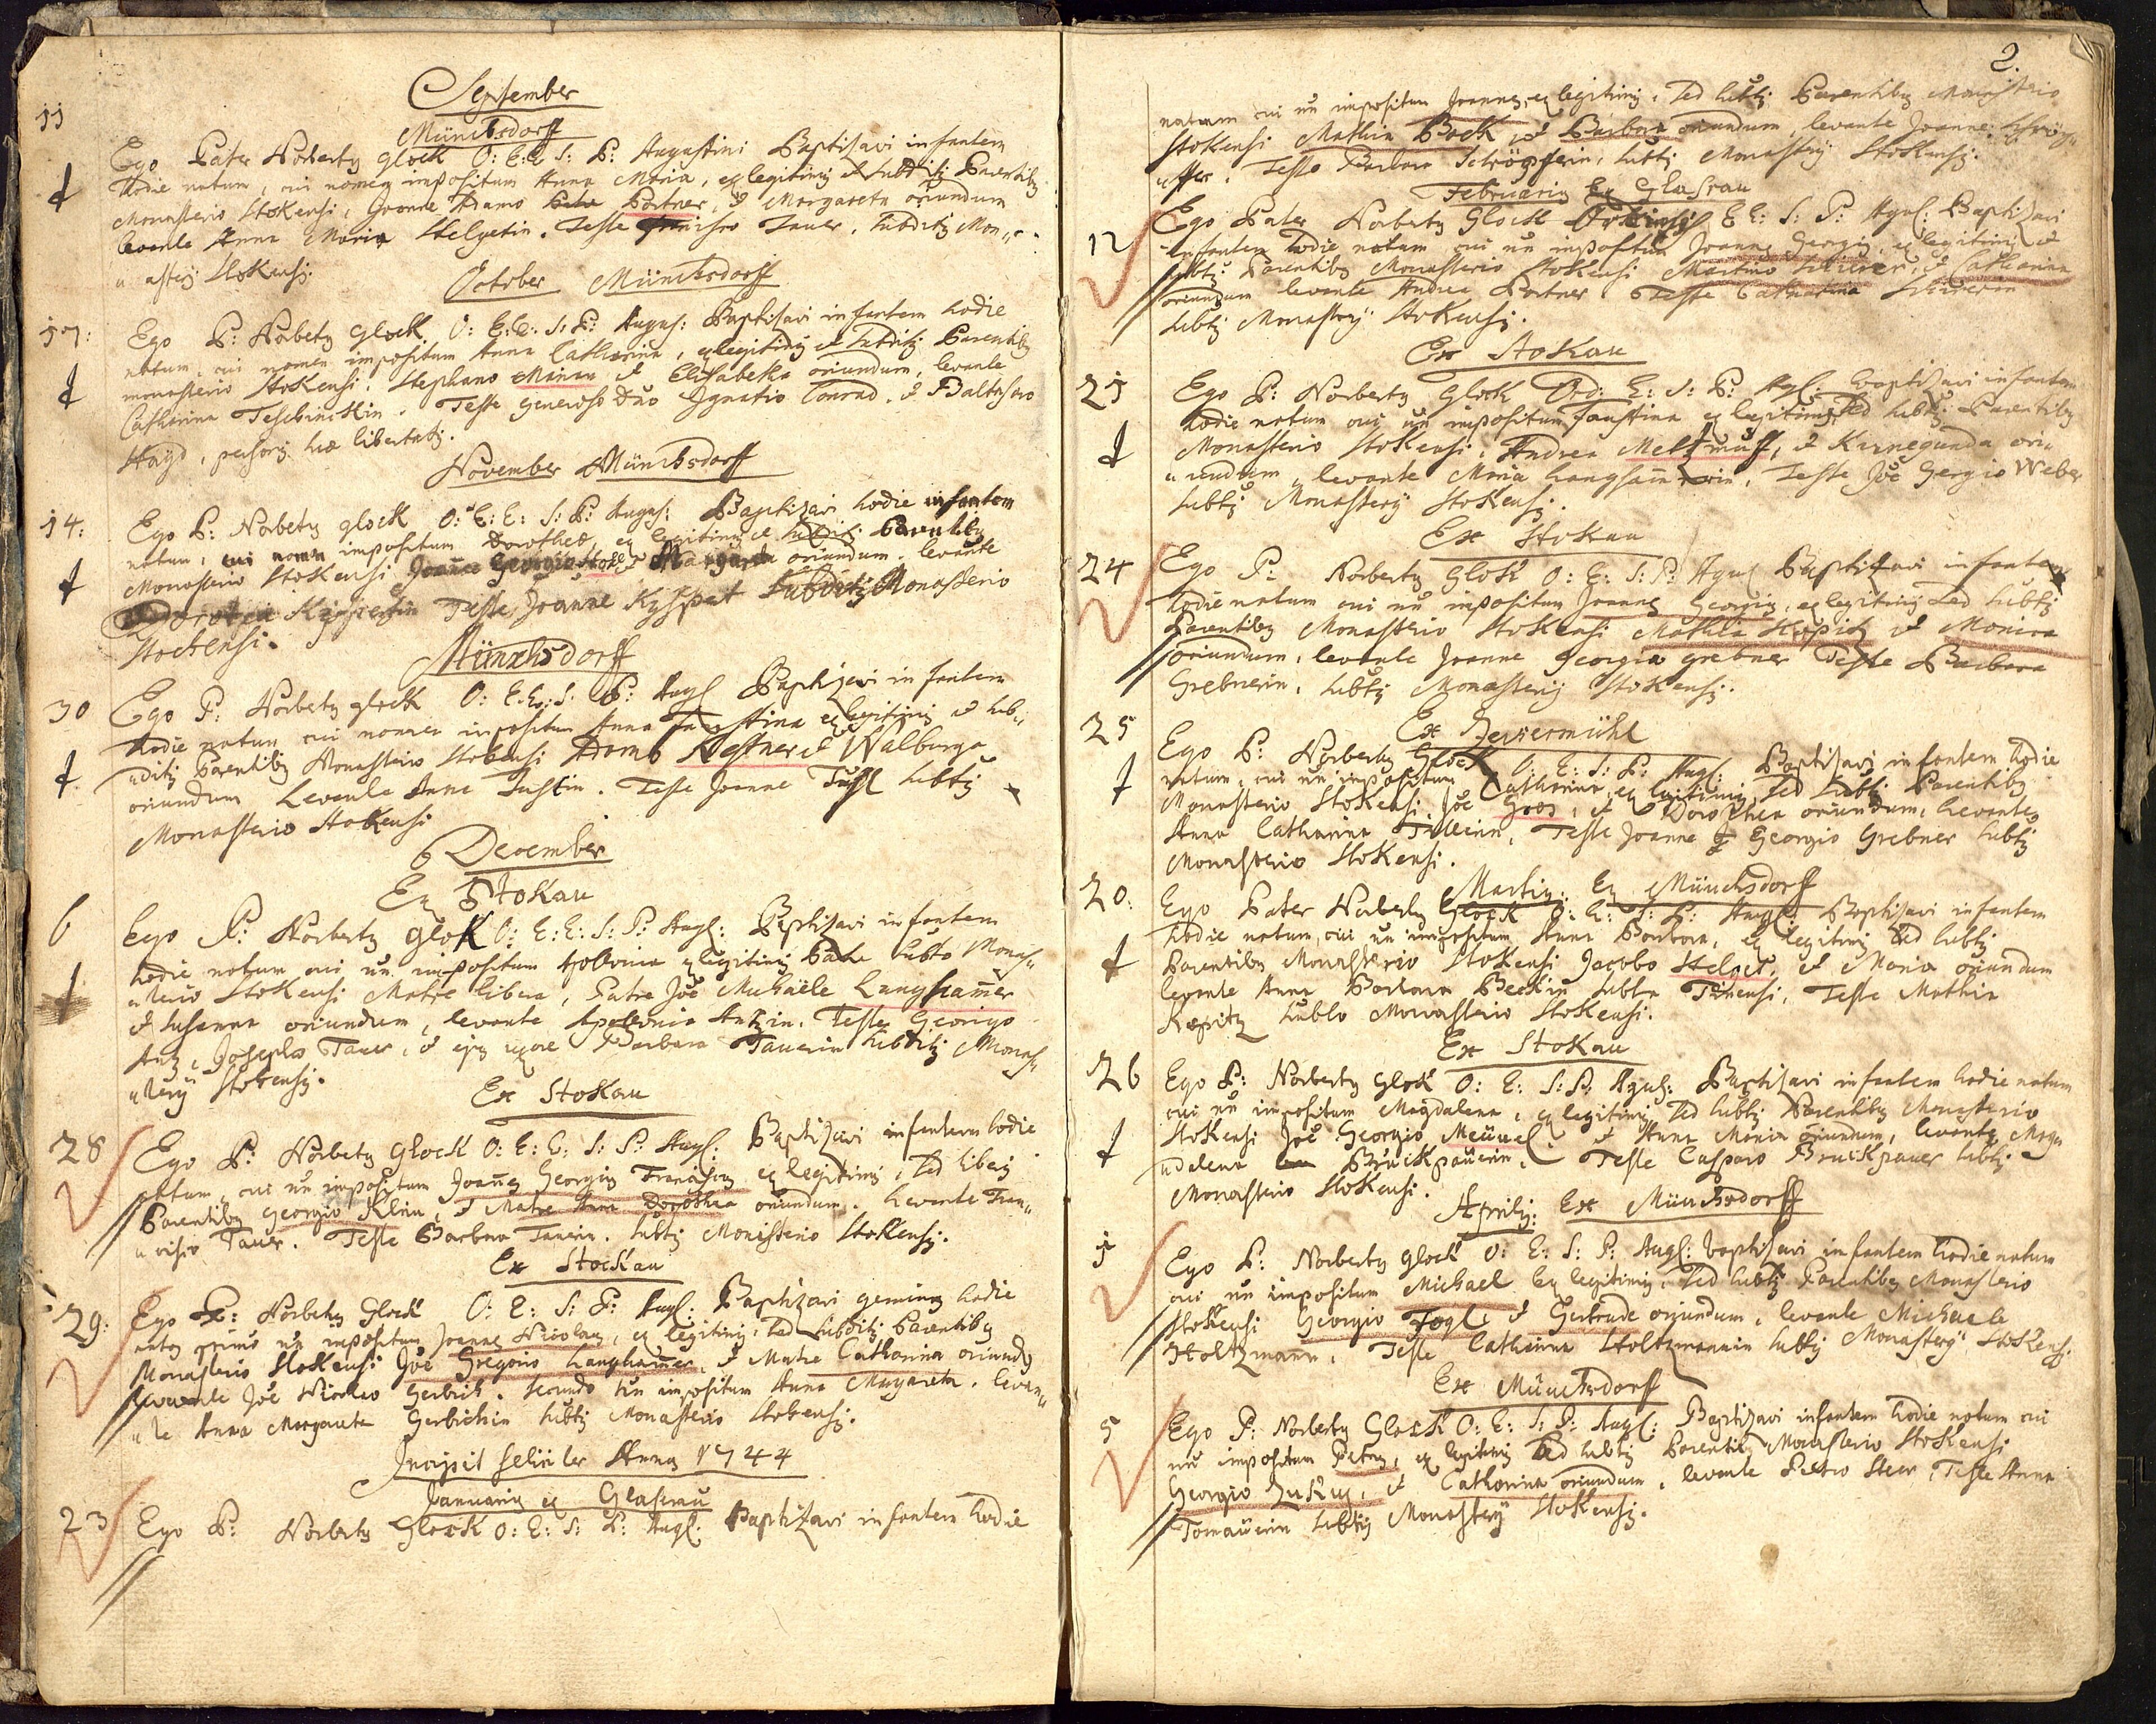 September
Münchsdorff
11
Ego Pater Norbertq Glock O: E: E S: P: Augustini Baptisavi infantem
hodie natum, cui nomen impositum Anna Maria, ex legitimis et Subditis Parentibq
Monasterio Stokensi, Joanne Adamo Portner, et Margareta oriundum
levante Anna Maria Stelzetin. Teste Tauer, Subditq Mon„
„asterij Stokensis.
October Münchsdorff
17:
Ego P: Norbertq Glock O: E: E: S: P: Augus: Baptisavi infantem hodie
natum, cui nomen impositum Anna Catharina, ex legitimis et Subditis Parentibq
monasterio Stokensi. Stephano Minan et Elisabetha oriundum, levante
Catharina Teschinckin. Teste generoso Dno Ignatio Conrad. et Baltasaro
Hayd, libertatis.
November Münchsdorff
14:
Ego P: Norbertq Glock O: E: E: S: P: Augus: Baptizavi hodie infantem
natum, cui nomen impositum Dorothea, ex legitimis et subditis Parentibq
Monasterio Stokensi Joanne Georgio et Margareta oriundum. levante
Teste Joanne Kyspert Subditq Monasterio
Stockensi.
Münchsdorff
30
Ego P: Norbertq Glock O: E: E: S: P: Augl Baptizavi infantem
hodie natum cui nomen impositum Anna Faustina ex legitimis et Sub„
„ditis Parentibq Monasterio Stokensi Adamo Kestner et Walburga
oriundum Levante Anna Fustin. Teste Joanne Subtq
Monasterio Stokensi
6 December
Ex Stokau
6
Ego P: Norbertq Glok O: E: E: S: P: Augl: Baptisavi infantem
hodie natum cui nn impositum Apolonia ex legitimis Patre Subto Monas„
„terio Stokensi Matre libera, Patre Joe Michaële Langhamer
et Susanna oriundum, levante Apollonia Antzin. Teste Georgio
Antz, Josepho Tauer, et ejq uxore Barbara Tauerin Subditis Monas„
„terij Stokensis.
Ex Stokau
28
Ego P: Norbertq Glock O: E: E: S: P: Augl: Baptizavi infantem hodie
natum, cui nn impositum Joanes Georgiq Franciscq ex legitimis, sed liberis
Parentibq Georgio Klein, et Matre Anna Dorothea oriundum. Levante Fran„
„cisco Tauer. Teste Barbara Tauerin. Subtis Monasterio Stokensis.
Ex Stockau
29:
Ego P: Norbertq Glock O: E: S: P: Augl: Baptizavi geminos hodie
natos primo nn impositum Joannes Nicolaus, ex legitimis, sed subditis Parentibq
Monasterio Stokensi Joe Gregorio Langhamer, et Matre Catharina oriundos
levante Joe Nicolao Gerbich. secundo nn impositum Anna Margareta. levan„
„te Anna Margareta Gerbichin Subtis Monasterio Stokensis.
Incipit feliciter Annus 1744
Januariq ex Glaserau
23
Ego P: Norbertq Glock O: E: S: P: Augl: Baptizavi infantem hodie
2.
natum cui nn impositum Joannes, ex legitimis, sed subtis Parentibq Monasterio
Stokensi Mathia Bock, et Barbara oriundum, levante Joanne Schröp„
„ffer. Teste Barbara Schröpferin, subtis Monasterij Stokensis.
Februariq Ex Glasrau
12
Ego Pater Norbertq Glock E E: S: P: Agus: Baptizavi
infantem hodie natum cui nn impositum Joannes Georgiq, ex legitimis et
subtis Parentibq Monasterio Stokensi Martino et Catharina
oriundum levante Andrea Portner. Teste Catharina
subtis Monasterij Stokensis.
Ex Stokau
21
Ego P: Norbertq Glock Ord: E: S: P: Agl: baptisavi infantem
hodie natum cui nn impositum Faustina ex legitimis, sed subtis Parentibq
Monasterio Stokensi, Andrea et Kunegunda ori„
„undum, levante Maria Langhamerin, Teste Joe Gergio Weber
subtis Monasterij Stokensis.
Ex Stokau
24
Ego P: Norbertq Glok O: E: S: P: Agus Baptizavi infantem
hodie natum cui nn impositum Joannes Georgiq, ex legitimis sed subtis
Parentibq Monasterio Stokensi Mathia Köpitz et Monica
oriundum, levante Joanne Georgio Grebner Teste Barbara
Grebnerin, subtis Monasterij Stokensis.
Ex Zeyiermühl
25
Ego P: Norbertq Glock O: E: S: P: Augl: Baptisavi infantem hodie
natum, cui nn impositum Catharina, ex legitimis, sed subtis Parentibq
Monasterio Stokensi, Joe Gros, et Dorothea oriundum, Levante
Anna Catharina, Teste Joanne Georgio Grebner subtis
Monasterio Stokensi.
Martiq: Ex Münchsdorff
20:
Ego Pater Norbertq Glock O: E: S: P: Augl: Baptisavi infantem
hodie natum, cui nn impositum Anna Barbara, ex legitimis sed subtis
Parentibq Monasterio Stokensi Jacobo Stelzet, et Maria oriundum
levante Anna Barbara Beckin subta, Teste Mathia
Kepitz subto Monasterio Stokensi.
Ex Stokau
26
Ego P: Norbertq Glock O: E: S: P: Agus: Baptisavi infantem hodie natum
cui nn impositum Magdalena, ex legitimis, sed subtis Parentibq Monasterio
Stokensi Joe Georgio Meüael et Anna Maria oriundum, levante Mag„
„dalena Bruckpaürin. Teste Casparo Bruckpauer subtis
Monasterio Stokensi.
Aprilis: Ex Münchsdorff
1
Ego P: Norbertq Glock O: E: S: P: Augl: baptisavi infantem hodie natum
cui nn impositum Michael ex legitimis, sed subtis Parentibq Monasterio
Stokensi Georgio Fogl, et Gertrude oriundum, levante Michaele
Holtzmann, Teste Catharina Holtzmannin subtis Monasterij Stokens.
Ex Münchsdorff
5
Ego P: Norbertq Glock O: E: S: P: Augl: Baptizavi infantem hodie natum cui
nn impositum Petrus, ex legitimis sed subtis Parentibq Monasterio Stokensi
Georgio Zukus, et Catharina oriundum, levante Petro Steer, Teste Anna
Tomauerin subtis Monasterij Stokensis.